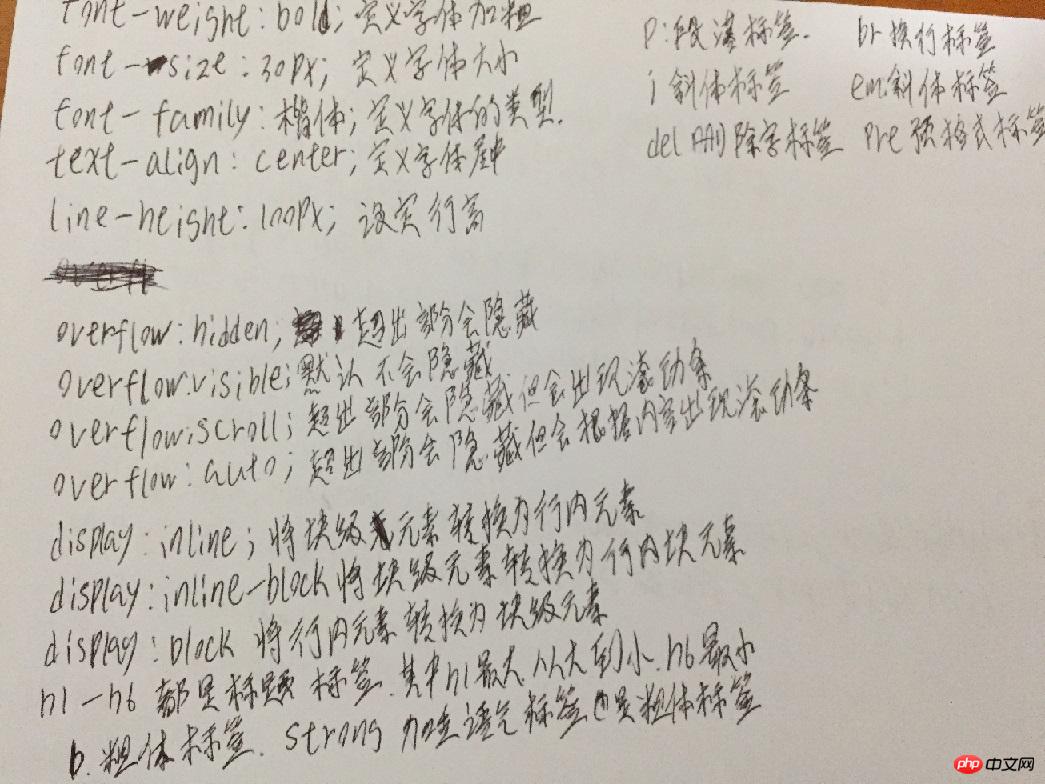 font-weight: bold; 定义字体加粗
font-size: 30px; 定义字体大小
font-family: 楷体; 定义字体的类型.
text-align: center; 定义字体居中
line-height: 100px; 设定行高
overflow: hidden; 超出部分会隐藏
overflow: visible; 默认不会隐藏
overflow: scroll; 超出部分会隐藏但会出现滚动条
overflow: auto; 超出部分会隐藏但会根据内容出现滚动条
display: inline; 将块级元素转换为行内元素
display: inline-block 将块级元素转换为行内块元素
display: block 将行内元素转换为块级元素
h1-h6 都是标题标签. 其中h1最大 从大到小. h6最小
b. 粗体标签. strong 加重语气标签也是粗体标签
p: 段落标签. br 换行标签
i 斜体标签 em: 斜体标签
del 删除字标签 pre 预格式标签
php 中文网